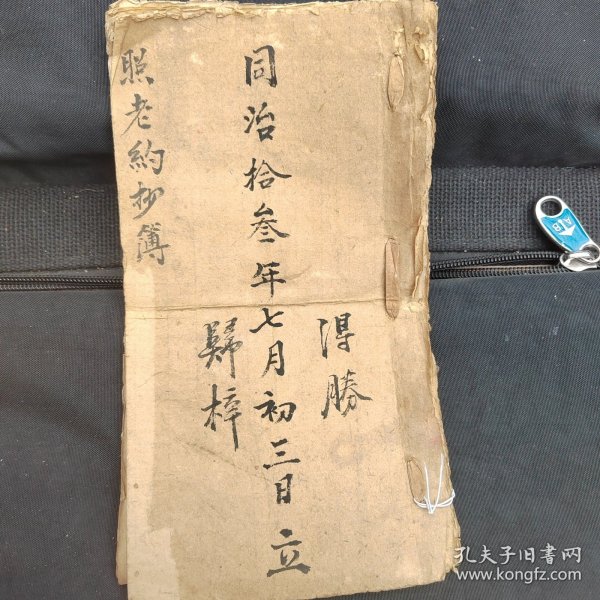 得勝
同治拾叁年七月初三日立
歸梓
照老約抄簿
孔夫子旧书网
www.kongfz.com
AB